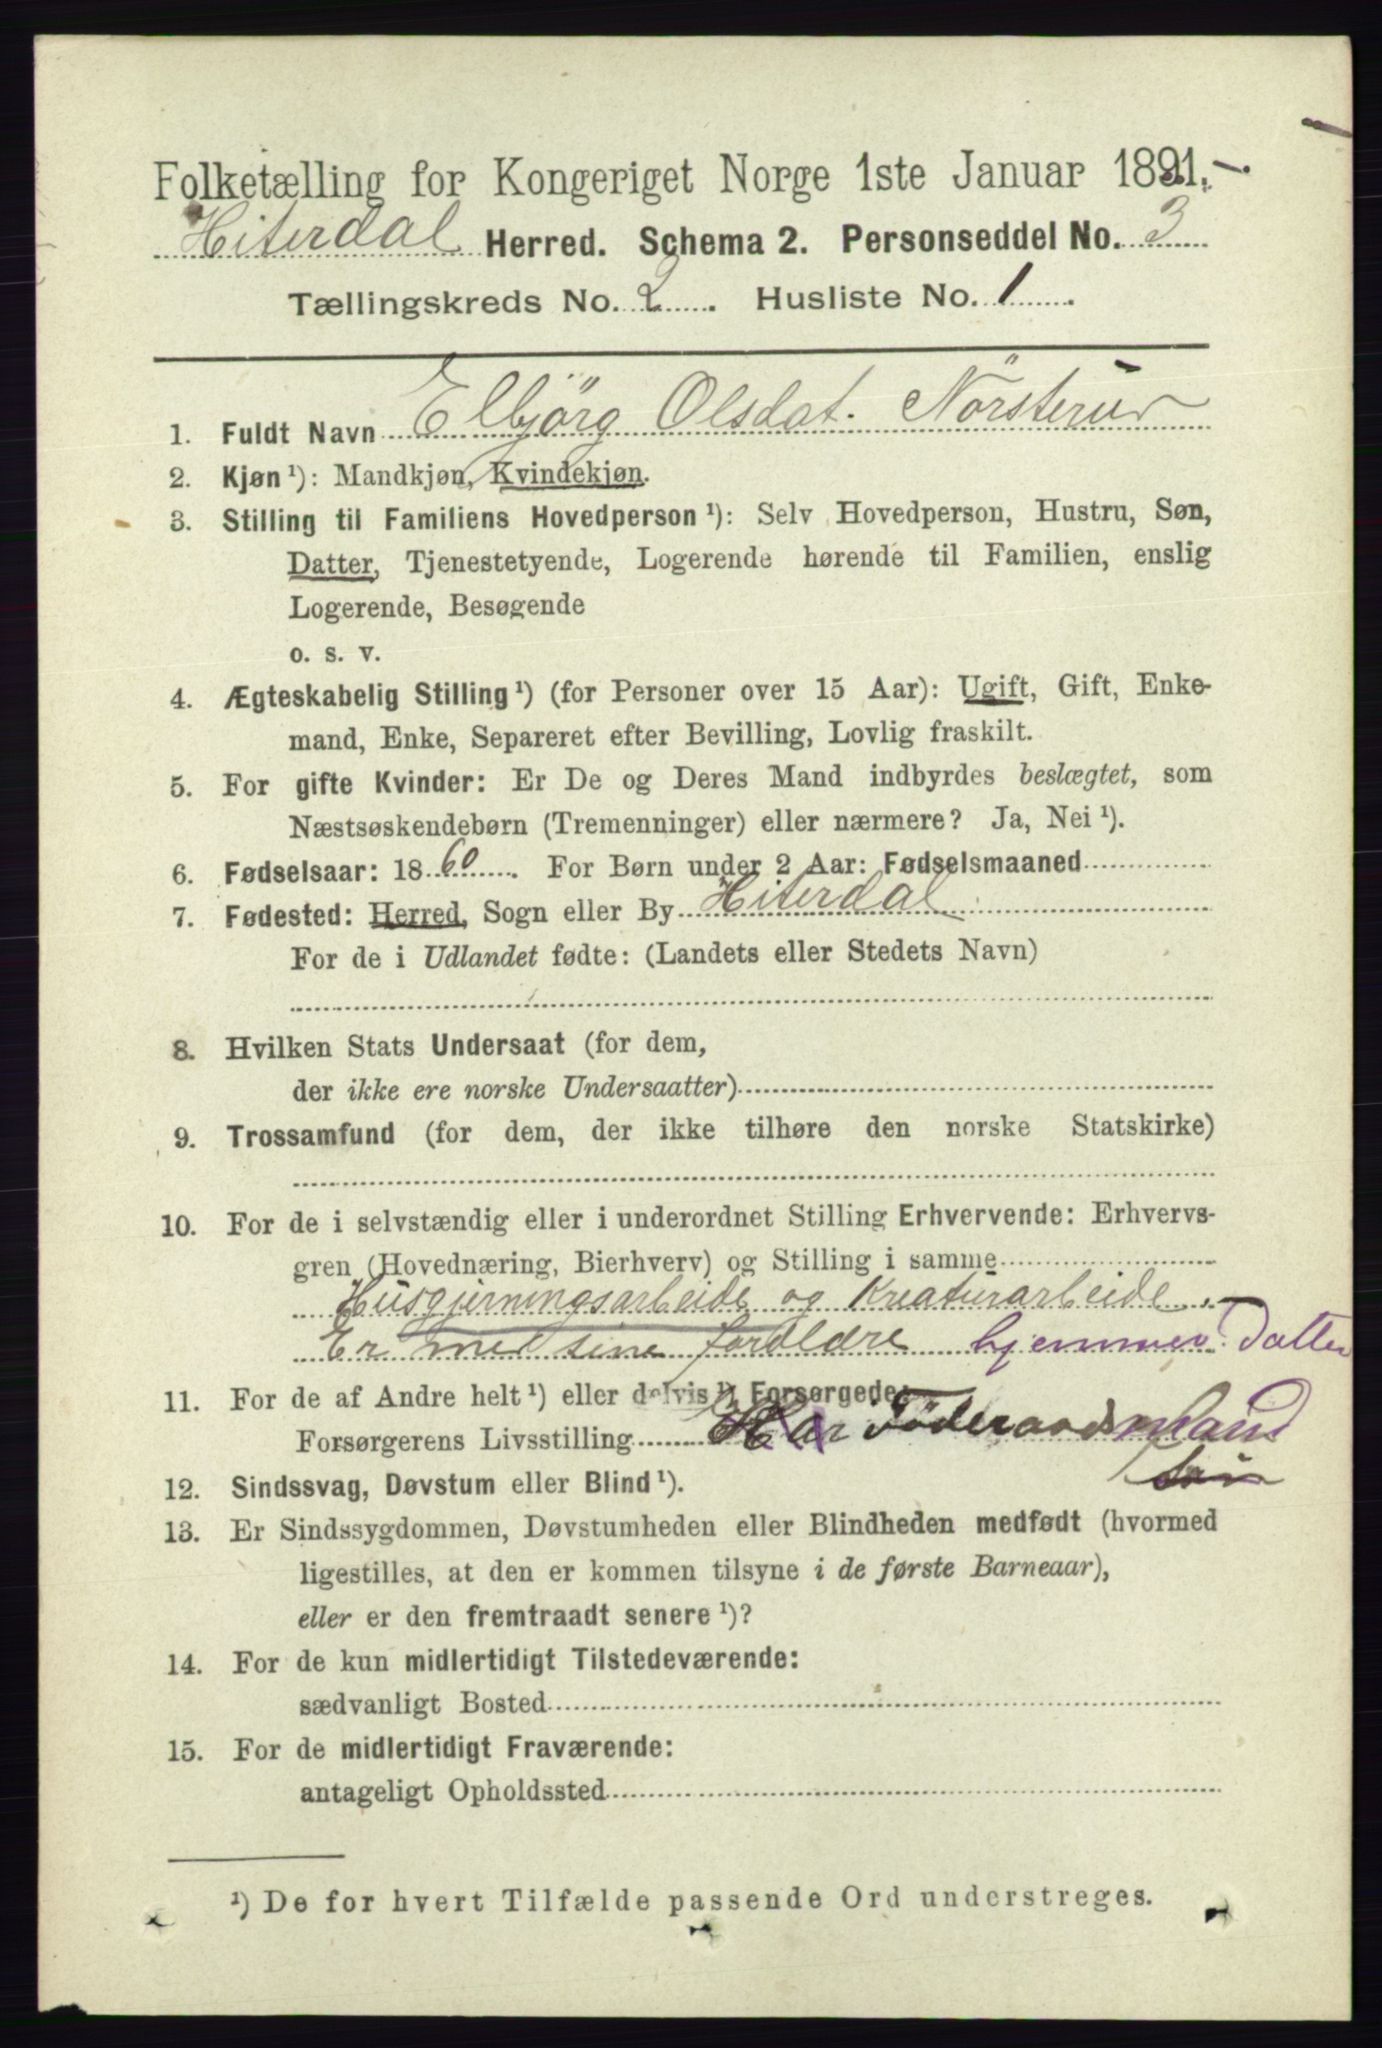 Folketælling for Kongeriget Norge 1ste Januar 1891.
Hiterdal Herred. Schema 2. Personseddel No. 3
Tællingskreds No. 2. Husliste No. 1.
1. Fuldt Navn Elbjörg Olsdat. Nörsterud
2. Kjøn ¹): Mandkjøn, Kvindekjøn.
3. Stilling til Familiens Hovedperson ¹): Selv Hovedperson, Hustru, Søn,
Datter, Tjenestetyende, Logerende hørende til Familien, enslig
Logerende, Besøgende
o. s. v.
4. Ægteskabelig Stilling ¹) (for Personer over 15 Aar): Ugift, Gift, Enke-
mand, Enke, Separeret efter Bevilling, Lovlig fraskilt.
5. For gifte Kvinder: Er De og Deres Mand indbyrdes beslægtet, som
Næstsøskendebørn (Tremenninger) eller nærmere? Ja, Nei ¹).
6. Fødselsaar: 1860. For Børn under 2 Aar: Fødselsmaaned
7. Fødested: Herred, Sogn eller By Hiterdal
For de i Udlandet fødte: (Landets eller Stedets Navn)
8. Hvilken Stats Undersaat (for dem,
der ikke ere norske Undersaatter)
9. Trossamfund (for dem, der ikke tilhøre den norske Statskirke)
10. For de i selvstændig eller i underordnet Stilling Erhvervende: Erhvervs-
gren (Hovednæring, Bierhverv) og Stilling i samme
Husgjerningsarbeide og Kreaturarbeide.
Er med sine foreldre hjemmev. Datter
11. For de af Andre helt ¹) eller delvis ¹) Forsørgede:
Forsørgerens Livsstilling Har Föderaadsmand
12. Sindssvag, Døvstum eller Blind ¹).
13. Er Sindssygdommen, Døvstumheden eller Blindheden medfødt (hvormed
ligestilles, at den er kommen tilsyne i de første Barneaar),
eller er den fremtraadt senere ¹)?
14. For de kun midlertidigt Tilstedeværende:
sædvanligt Bosted
15. For de midlertidigt Fraværende:
antageligt Opholdssted
¹) De for hvert Tilfælde passende Ord understreges.